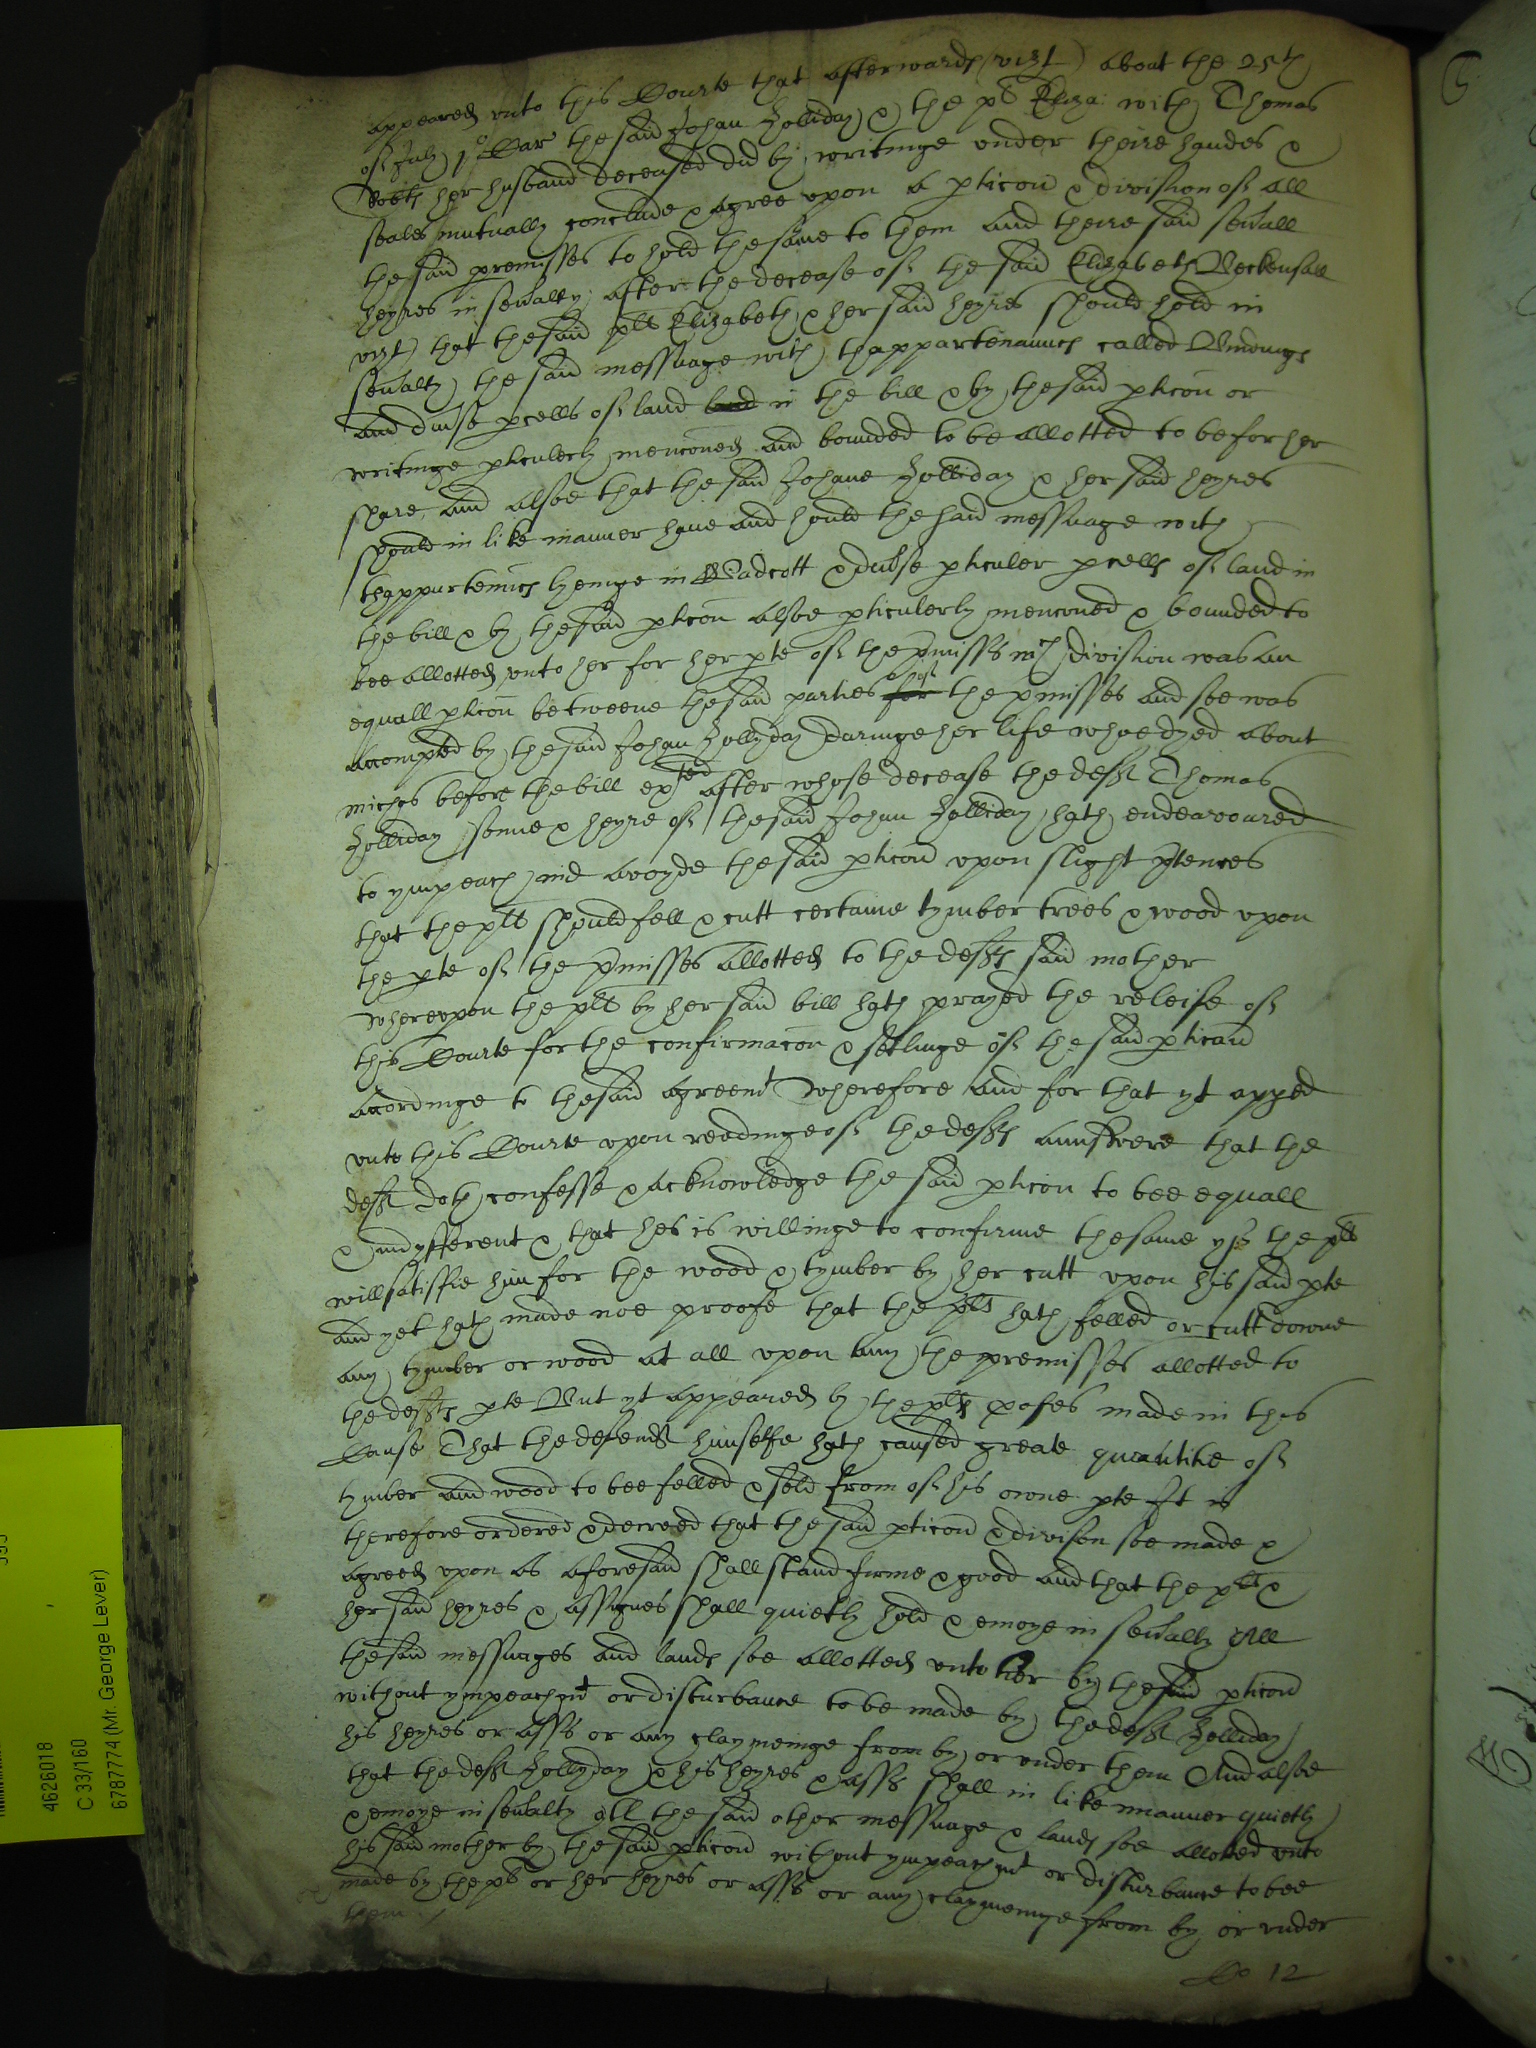 appeared unto this Courte that afterwards (vizt) about the 25th
of July 1° Car the said Johan Holliday & the pl Eliza: with Thomas
her husband deceased did by writinge under theire handes &
seales mutually conclude & agree upon a pticon & division of all
the said premisses to hold the same to them and theire said sevall
heyres in sevalty after the decease of the said Elizabeth Beckensall
vizt) that the said plt Elizabeth & her said heyres should hold in
sevalty the said messuage with thappartenaunces called
and divse pcells of land land in the bill & by the said pticon or
writinge pticulerly menconed and bounded to be allotted to be for her
share, and alsoe that the said Johane Holliday & her said heyres
should in like manner have and hould the said messuage with
thappurtenncs lyeinge in Wadcott & divse pticuler pcells of land in
the bill & by the said pticon alsoe pticulerly menconed & bounded to
bee allotted unto her for her pte of the pmisss wch division was an
equall pticon betweene the said parties for of the pmisses and soe was
accompted by the said Johan Hollyday duringe her life whoe dyed about
before the bill exted after whose decease the deft Thomas
Holliday sonne & heyre of the said Johan Holliday hath endeavoured
to ympeach and avoyde the said pticon upon slight ptences
that the plt should fell & cutt certaine tymber trees & wood upon
the pte of the pmisses allotted to the defts said mother
whereupon the plt by her said bill hath prayed the releife of
this Courte for the confirmacon & setlinge of the said pticon
accordinge to the said agreemt Wherefore and for that yt apped
unto this Courte upon readinge of the defts aunswere that the
deft doth confesse & acknowledge the said pticon to bee equall
& indyfferent & that hee is willinge to confirme the same yf the plt
will satisfie him for the wood & tymber by her cutt upon his said pte
and yet hath made noe proofe that the plt hath felled or cutt downe
any tymber or wood at all upon any the premisses allotted to
the defts pte But yt appeared by the plts pofes made in this
Cause That the defendt himselfe hath caused greate quantitie of
tymber and wood to bee felled & sold from of his owne pte It is
therefore ordered & decreed that the said pticon & divison soe made &
agreed upon as aforesaid shall stand firme & good and that the plt &
her said heyres & assignes shall quietly hold & enioye in sevalty All
the said messuages and lands soe allotted unto her by the said pticon
without ympeachmt or disturbance to be made by the deft Holliday
his heyres or asss or any claymeinge from by or under them And alsoe
that the deft Hollyday & his heyres & asss shall in like manner quietly
& enioye in sevalty all the said other messuage & lands soe allotted unto
his said mother by the said pticon without ympeachmt or disturbance to bee
made by the plt or her heyres or asss or any claymeinge from by or under
them
12
4626018
C 33/160
6787774 (Mr. George Lever)